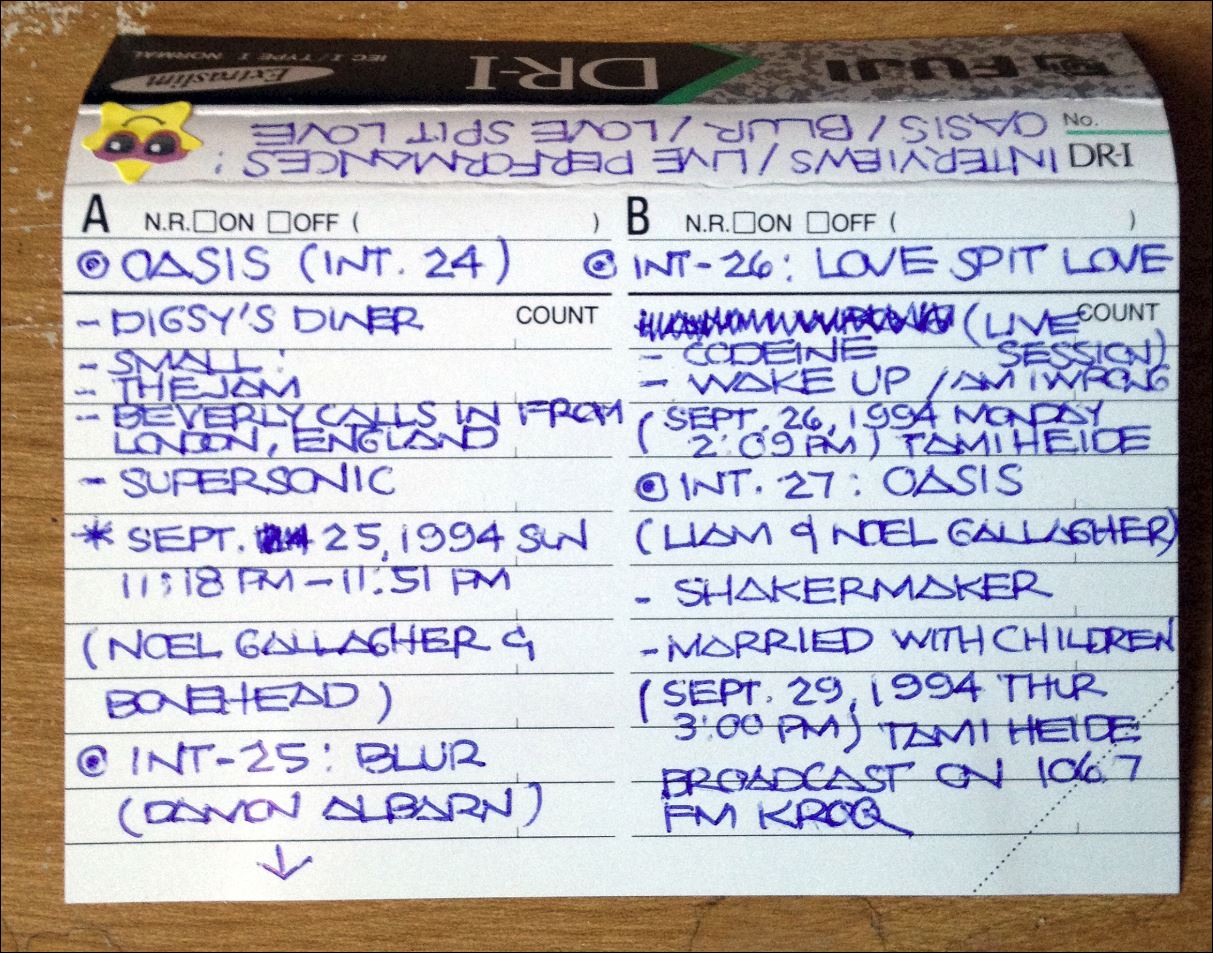 FUJI
DR-I
IEC I / TYPE I NORMAL
Extraslim
No.
DR-I
INTERVIEWS / LIVE PERFORMANCES:
OASIS / BLUR / LOVE SPIT LOVE
A N.R. □ON □OFF ( )
OASIS (INT. 24)
COUNT
- DIGSY'S DINER
- SMALL:
- THE JAM
- BEVERLY CALLS IN FROM
LONDON, ENGLAND
- SUPERSONIC
* SEPT. 25, 1994 SUN
11:18 PM - 11:51 PM
(NOEL GALLAGHER &
BONEHEAD)
INT-25: BLUR
(DAMON ALBARN)
↓
B N.R. □ON □OFF ( )
INT-26: LOVE SPIT LOVE
COUNT
(LIVE
SESSION)
- CODEINE
- WAKE UP / AM I WRONG
(SEPT. 26, 1994 MONDAY
2:09 PM) TAMI HEIDE
INT. 27: OASIS
(LIAM & NOEL GALLAGHER)
- SHAKERMAKER
- MARRIED WITH CHILDREN
(SEPT. 29, 1994 THUR
3:00 PM) TAMI HEIDE
BROADCAST ON 106.7
FM KROQ